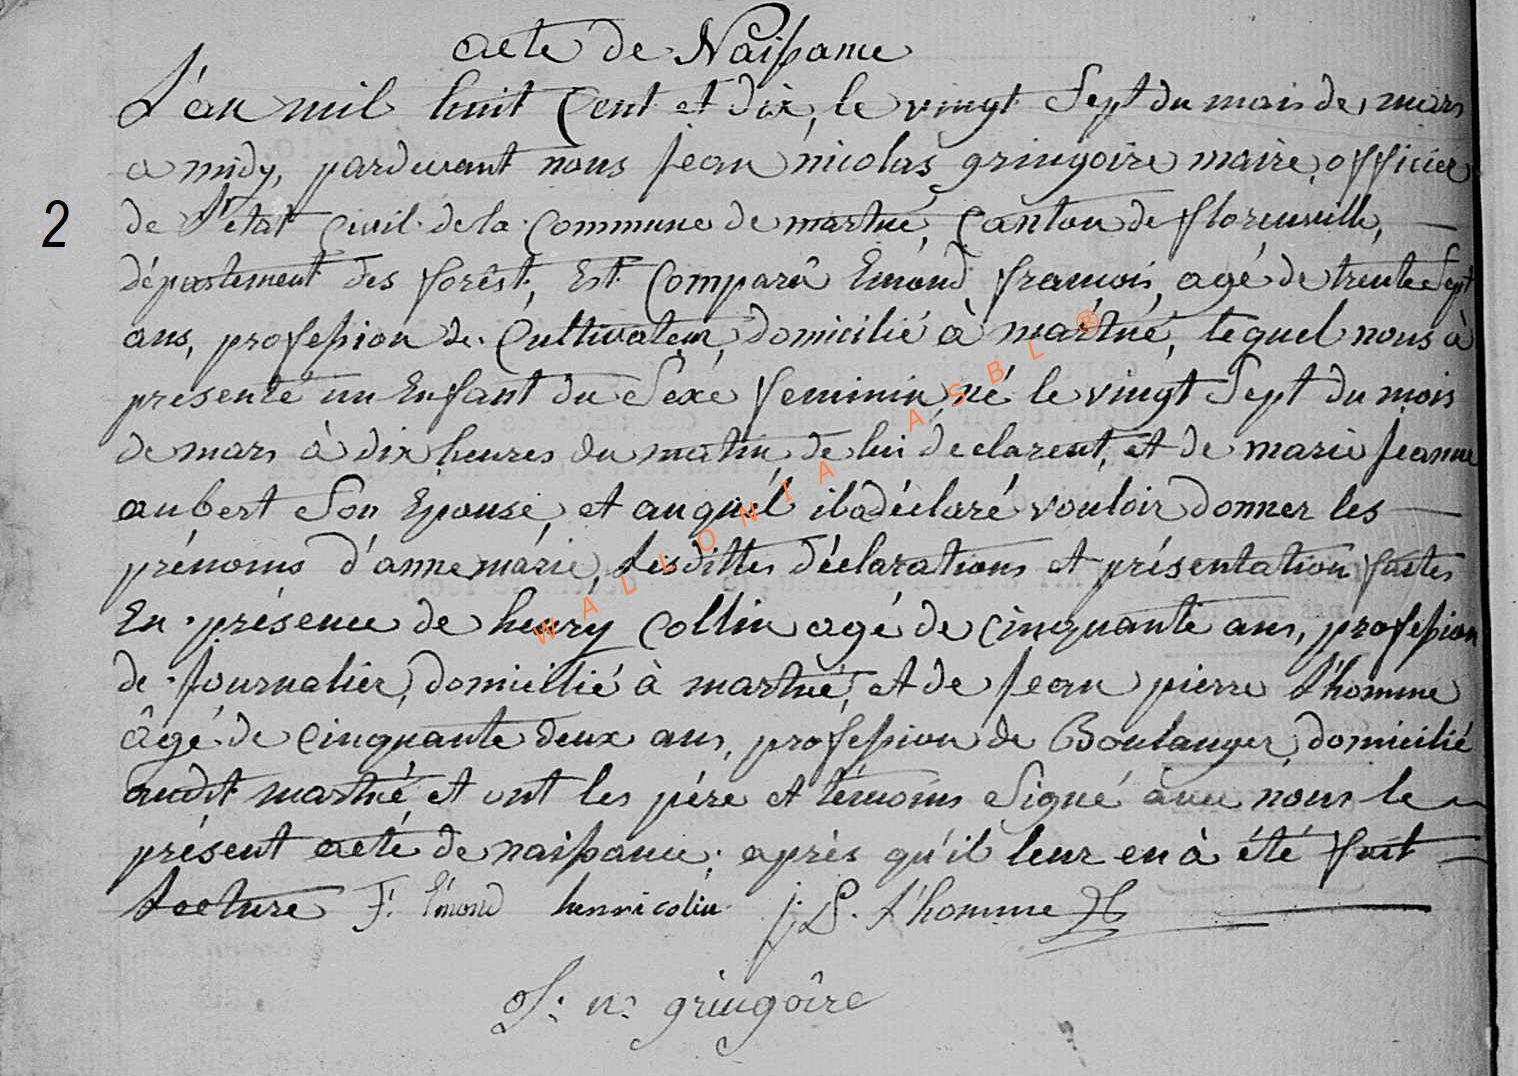 acte de Naissance
L'an mil huit Cent et dix, le vingt Sept du mois de mars
a midy, pardevant nous Jean nicolas gringoire maire, officier
2
de L'état Civil de la Commune de martué, Canton de florenville,
département des forêst, Est Comparû Emond francois, agé de trente Sept
ans, profession de Cultivateur, domicilié à martué, lequel nous à
présenté un Enfant du Sexe feminin, né le vingt Sept du mois
de mars à dix heures du matin, de lui déclarent, et de marie Jeanne
aubert Son Epouse, et auquel il a déclaré vouloir donner les
prénoms d'anne marie, Lesdittes déclarations et présentation faites
En présence de henry Collin agé de cinquante ans, profession
de Journalier, domicilié à martué, et de Jean pierre l'homme
âgé de Cinquante deux ans, profession de Boulanger, domicilié
audit martué et ont les pére et témoins Signé avec nous le
présent acte de naissance, après qu'il leur en à été fait
Lecture F. Emond henri colin J: P. l'homme
J: n: gringôire
WALLONIA ASBL ®